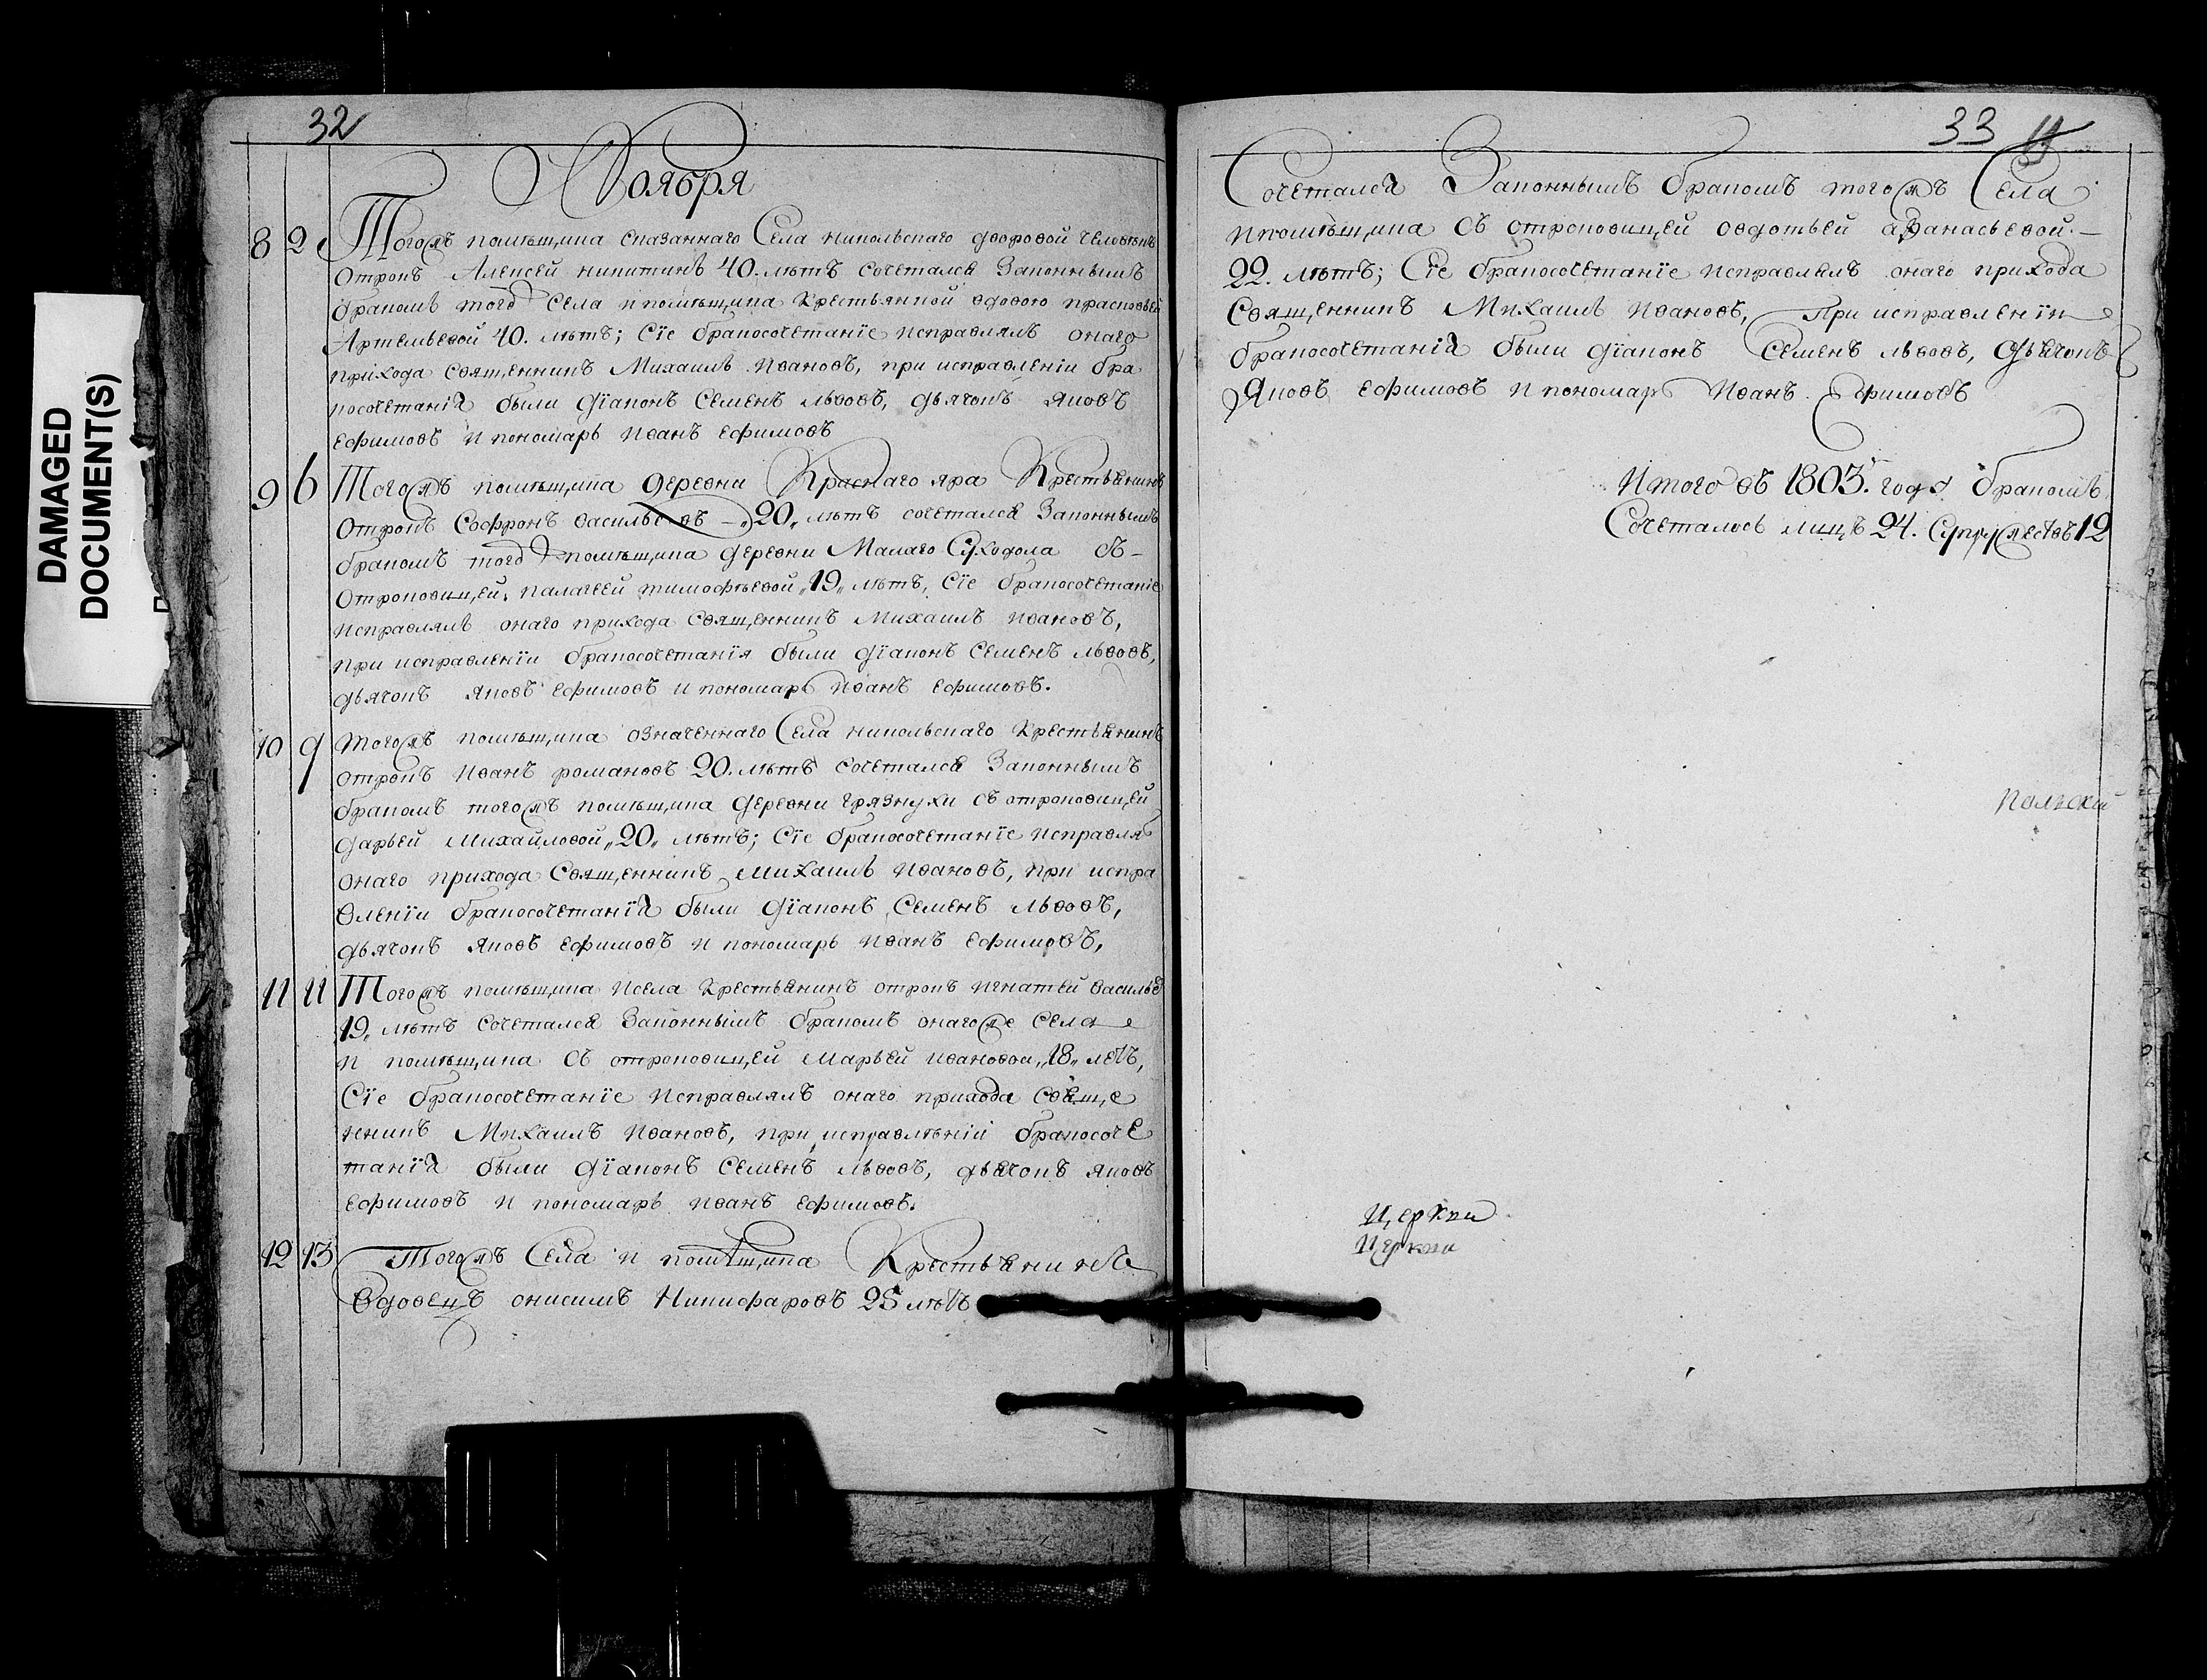 DAMAGED
DOCUMENT(S)
32
Ноября
8 2 Тогожъ помѣщика сказаннаго Села никольскаго дворовой человѣкъ
отрокъ Алексей никитинъ 40. лѣтъ сочетался Законнымъ
бракомъ тогожъ села и помѣщика крестьянкой вдовою прасковьей
Артемьевой 40. лѣтъ; Сїе бракосочетанїе исправлялъ онаго
прихода священникъ Михаилъ Ивановъ, при исправленїи бра
косочетанїя были дїаконъ Семенъ львовъ, дьячокъ яковъ
ефимовъ и пономарь иванъ ефимовъ
9 6 Тогожъ помѣщика деревни Краснаго яра Крестьянинъ
отрокъ Софронъ васильевъ „20„ лѣтъ сочетался Законнымъ
бракомъ тогожъ помѣщика деревни Малаго Суходола съ
отроковицей, палагеей тимофѣевой „19„ лѣтъ, Сїе бракосочетанїе
исправлялъ онаго прихода священникъ Михаилъ ивановъ,
при исправленїи бракосочетанїя были дїаконъ Семенъ львовъ,
дьячокъ яковъ ефимовъ и пономарь иванъ ефимовъ.
10 9 тогожъ помѣщика означеннаго Села никольскаго крестьянинъ
отрокъ иванъ романовъ 20. лѣтъ сочетался Законнымъ
бракомъ тогожъ помѣщика деревни грязнухи съ отроковицей
дарьей михайловой „20„ лѣтъ; Сїе бракосочетанїе исправля
онаго прихода Священникъ михаилъ ивановъ, при испра
вленїи бракосочетанїя были дїаконъ Семенъ львовъ,
дьячокъ яковъ ефимовъ и пономарь иванъ ефимовъ,
11 11 Тогожъ помѣщика исела крестьянинъ отрокъ игнатей василье
19. лѣтъ сочетался Законнымъ бракомъ онагоже села
и помѣщика съ отроковицей марьей ивановой „18„ летъ,
Сїе бракосочетанїе исправлялъ онаго прихода свяще
нникъ Михаилъ ивановъ, при исправлѣнїи бракосоче
танїя были дїаконъ Семенъ львовъ, дьячокъ яковъ
ефимовъ и пономарь иванъ ефимовъ.
12 13 Тогожъ Села и помѣщика Крестьянинъ
Вдовецъ онисимъ Никифаровъ 25 лѣтъ
33 11
Сочетался Законнымъ бракомъ тогожъ Села
ипомѣщика съ отроковицей овдотьей афанасьевой
22. лѣтъ; Сїе бракосочетанїе исправлялъ онаго прихода
Священникъ Михаилъ ивановъ, При исправленїи
бракосочетанїя были дїаконъ Семенъ львовъ, дьячокъ
Яковъ ефимовъ и пономарь Иванъ Ефимовъ
Итого въ 1803. году бракомъ
Сочеталось лицъ 24. Супружествъ 12
Церкви
Церкви